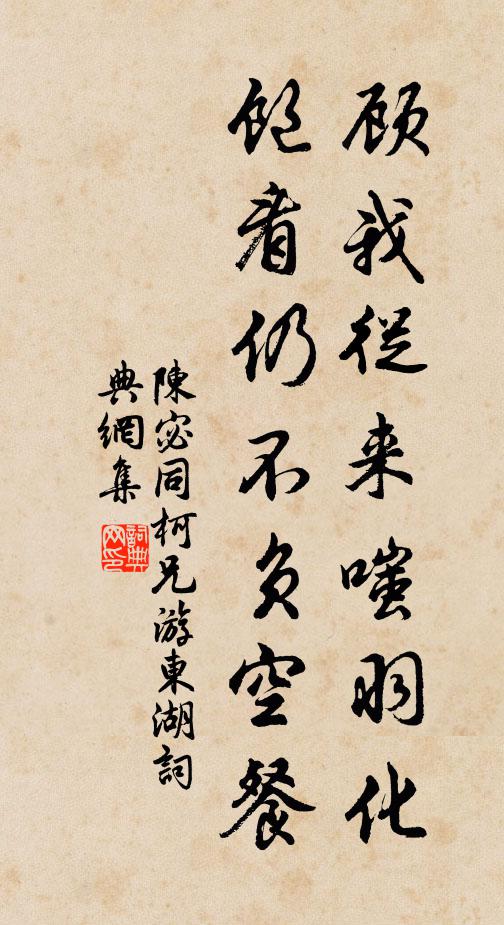 顾我從来嗤羽化
飽看仍不負空餐
陳宓同柯兄游東湖詞
典網集
詞典
网印